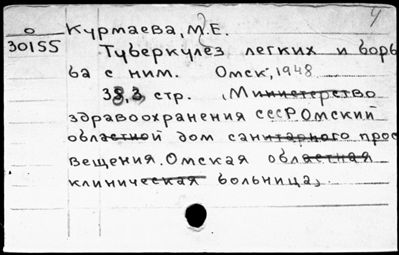 4
о Курмаева, М.Е.
30155 Туберкулез легких и борь
ба с ним. Омск, 1948
38,3 стр. (Министерство
здравоохранения СССР. Омский
областной дом санитарного прос
вещения. Омская областная
клиническая больница)